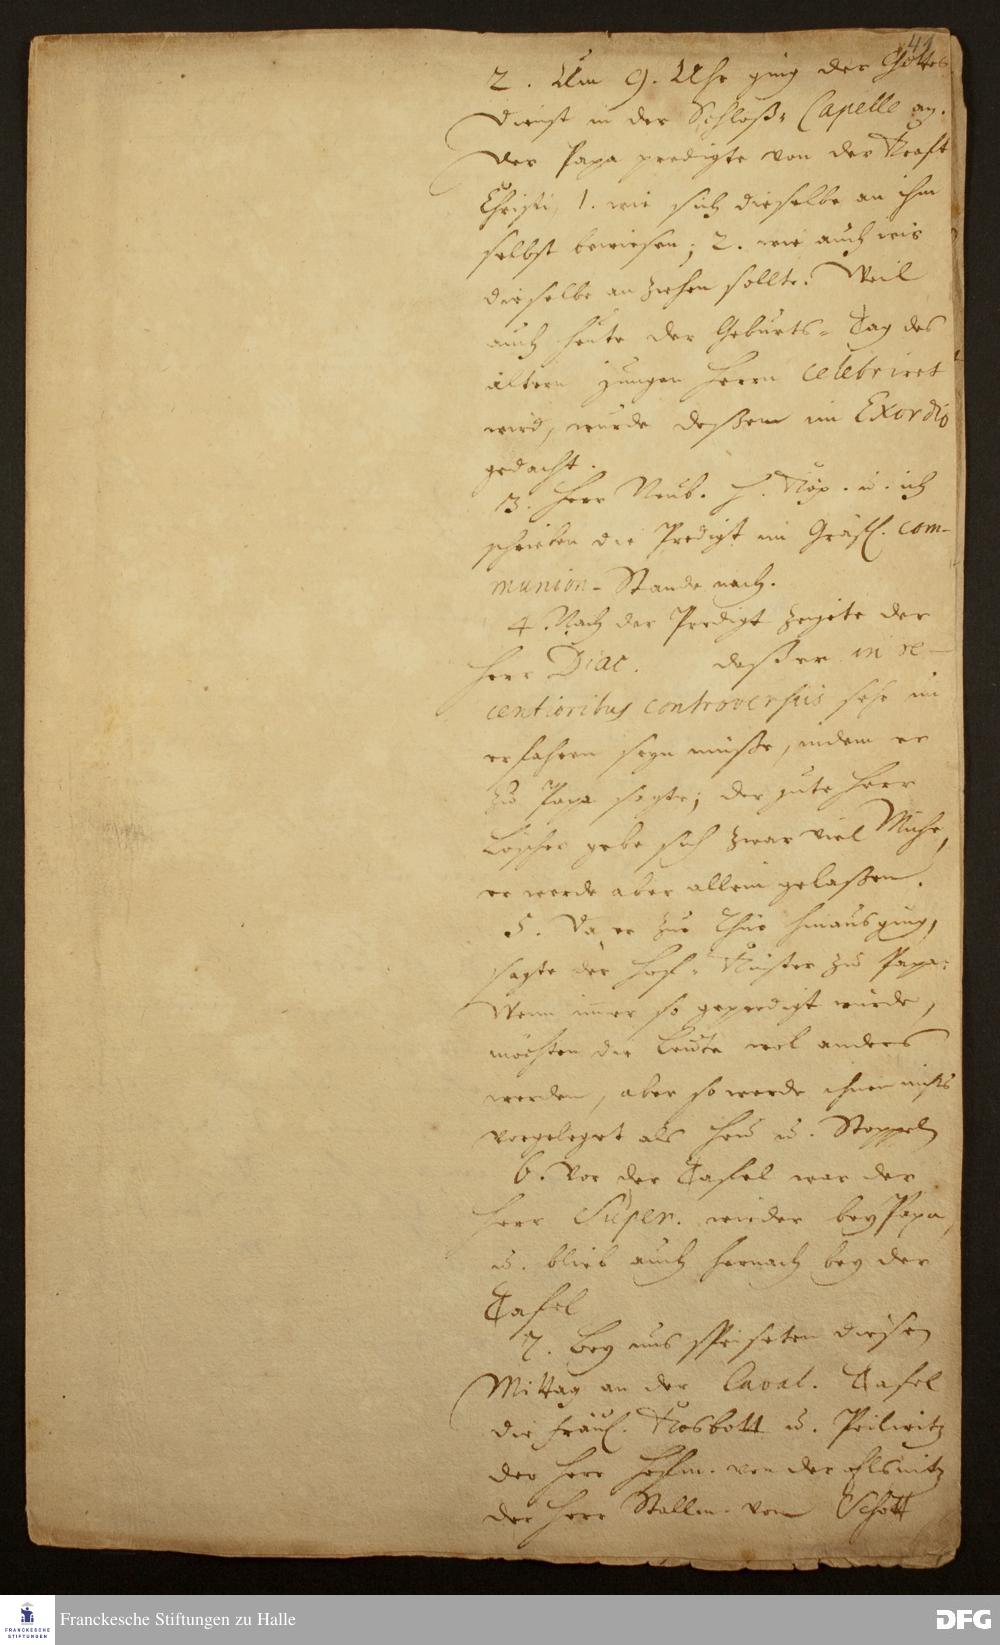 41
2. Um 9. Uhr ging der Gottes
dienst in der Schloß-Capelle an.
Der Papa predigte von der Krafft
Christi, 1. wie sich dieselbe an ihm
selbst bewiesen; 2. wie auch wir
dieselbe anziehen sollte. Weil
auch heute der Geburts-Tag des
ältern jungen Herrn celebriret
wird, wurde deßen im Exordio
gedacht.
3. Herr Neub. H. Köp. u. ich
schrieben die Predigt im Gräfl. com-
munion-Stande nach.
4. Nach der Predigt zeigte der
Herr Diac. daß er in re-
centioribus controversiis sehr un
erfahren seyn müße, indem er
zu Papa sagte; der gute Herr
Löscher gebe sich zwar viel Mühe,
er werde aber allein gelaßen.
5. Da er zur Thür hinausging,
sagte der Hof-Küster zu Papa:
Wenn immer so geprediget würde,
möchten die Leute wol anders
werden, aber so werde ihnen nichts
vorgeleget als Heu u. Stoppeln
6. Vor der Tafel war der
Herr Super. wieder bey Papa,
u. blieb auch hernach bey der
Tafel
7. Bey uns speiseten diesen
Mittag an der Caval. Tafel
die Fräul. Kosbott u. Peilwitz
der Herr Hofm. von der Elsnitz
der Herr Stallm. von Schott
Franckesche Stiftungen zu Halle
FRANCKESCHE
STIFTUNGEN
DFG